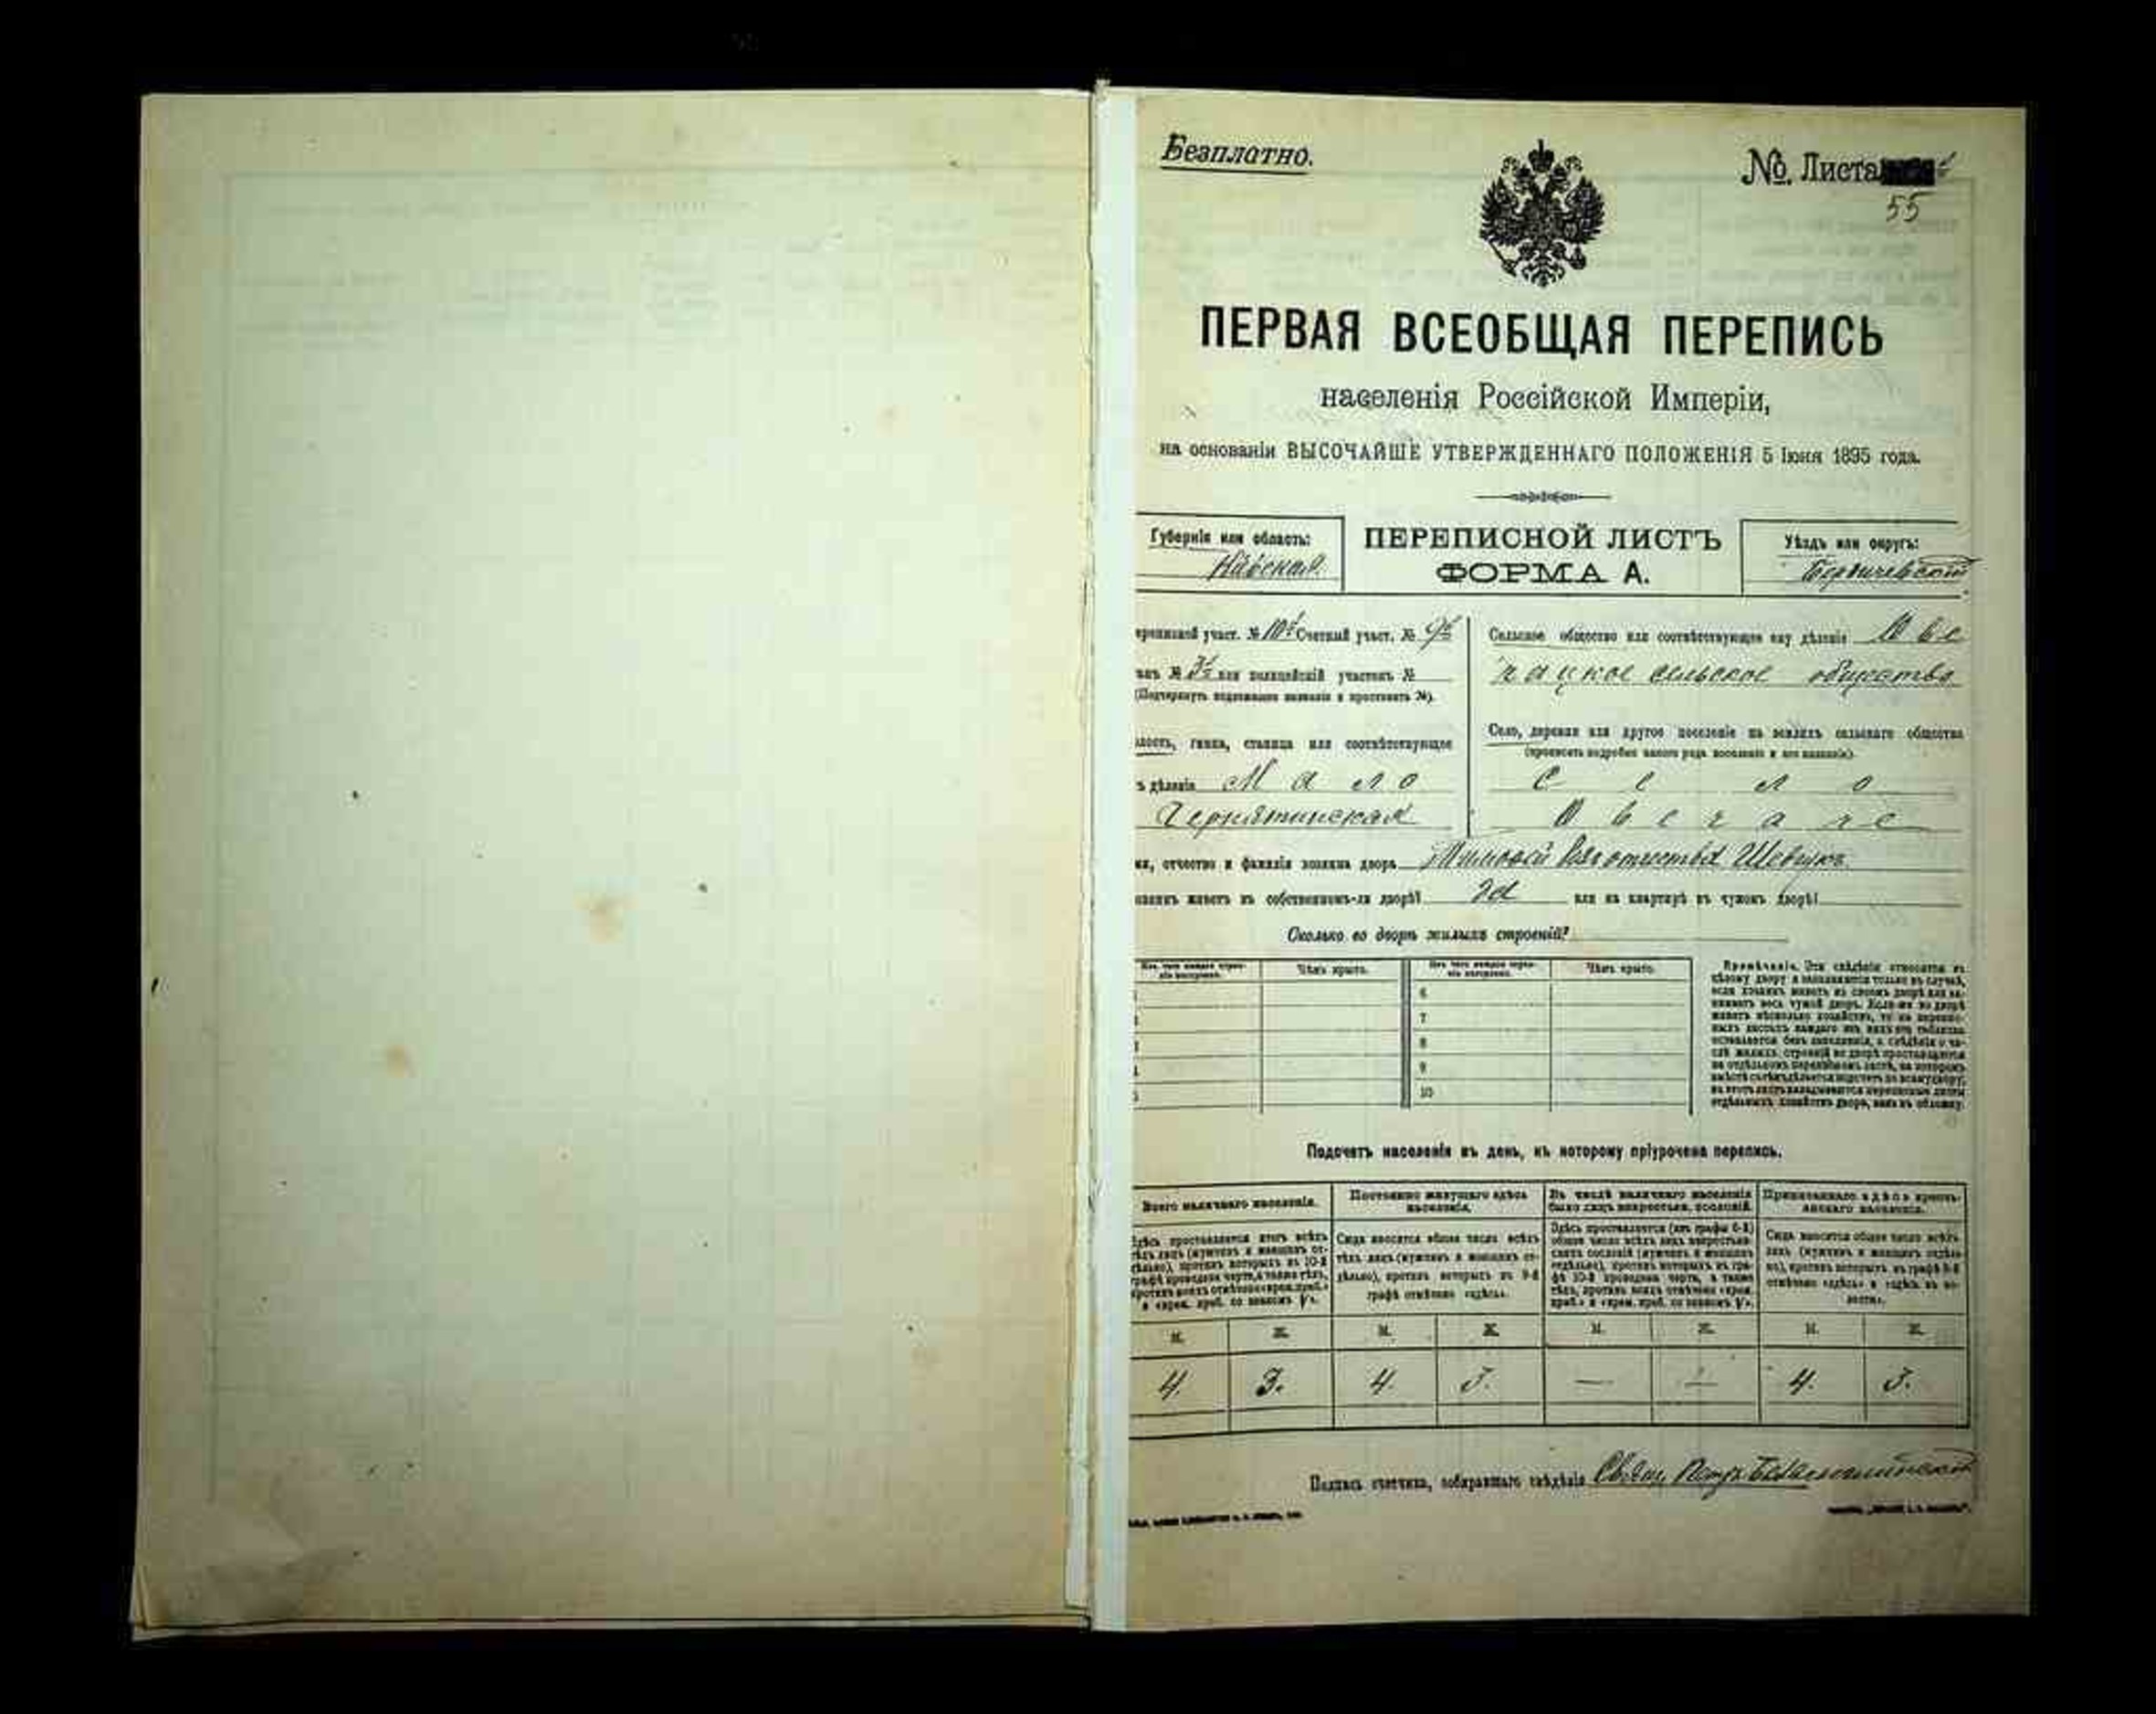 Безплатно.
№ Листа
55
ПЕРВАЯ ВСЕОБЩАЯ ПЕРЕПИСЬ
населенія Россійской Имперіи,
на основаніи ВЫСОЧАЙШЕ УТВЕРЖДЕННАГО ПОЛОЖЕНІЯ 5 Іюня 1895 года.
Губернія или область:
Кіевская.
ПЕРЕПИСНОЙ ЛИСТЪ
ФОРМА А.
Уѣздъ или округъ:
Бердичевскій
ереписной участ. № 10й Счетный участ. № 9й
анъ № 3й или полицейскій участокъ №
(Подчеркнуть подлежащее названіе и проставить №).
лость, гмина, станица или соотвѣтствующее
ъ дѣленіе Мало
Чернятинская
Сельское общество или соотвѣтствующее ему дѣленіе Ове
чацкое сельское общество
Село, деревня или другое поселеніе на земляхъ сельскаго общества
(прописать подробно какого рода поселеніе и его названіе).
Село
Овечаче
мя, отчество и фамилія хозяина двора Тимофей безъ отчества Шевчукъ
озяинъ живетъ въ собственномъ-ли дворѣ? да или на квартирѣ въ чужомъ дворѣ?
Сколько во дворѣ жилыхъ строеній?
Изъ чего каждое строе-
ніе построено.
Чѣмъ крыто.
Изъ чего каждое строе-
ніе построено.
Чѣмъ крыто.
6
7
8
9
10
Примѣчаніе. Эти свѣдѣнія относятся къ
цѣлому двору и заполняются только въ случаѣ,
если хозяинъ живетъ въ своемъ дворѣ или за-
нимаетъ весь чужой дворъ. Если-же во дворѣ
живетъ нѣсколько хозяйствъ, то на перепис-
ныхъ листахъ каждаго изъ нихъ эта табличка
оставляется безъ заполненія, а свѣдѣнія о чи-
слѣ жилыхъ строеній во дворѣ проставляются
на отдѣльномъ переписномъ листѣ, на которомъ
вмѣстѣ съ тѣмъ дѣлается подсчетъ по всему двору;
въ этотъ листъ вкладываются переписные листы
отдѣльныхъ хозяйствъ двора, какъ въ обложку.
Подсчетъ населенія въ день, къ которому пріурочена перепись.
Всего наличнаго населенія.
Постоянно живущаго здѣсь
населенія.
Въ числѣ наличнаго населенія
было лицъ некрестьян. сословій.
Приписаннаго здѣсь кресть-
янскаго населенія.
Здѣсь проставляется итогъ всѣхъ
тѣхъ лицъ (мужчинъ и женщинъ от-
дѣльно), противъ которыхъ въ 10-й
графѣ проведена черта, а также тѣхъ,
противъ коихъ отмѣчено «врем. преб.»
и «врем. преб. со знакомъ V».
Сюда вносится общее число всѣхъ
тѣхъ лицъ (мужчинъ и женщинъ от-
дѣльно), противъ которыхъ въ 9-й
графѣ отмѣчено «здѣсь».
Здѣсь проставляется (изъ графы 6-й)
общее число всѣхъ лицъ некрестьян-
скихъ сословій (мужчинъ и женщинъ
отдѣльно), противъ которыхъ въ гра-
фѣ 10-й проведена черта, а также
тѣхъ, противъ коихъ отмѣчено «врем.
преб.» и «врем. преб. со знакомъ V».
Сюда вносится общее число всѣхъ
лицъ (мужчинъ и женщинъ отдѣль-
но), противъ которыхъ въ графѣ 8-й
отмѣчено «здѣсь» и «здѣсь въ во-
лости».
М. Ж. М. Ж. М. Ж. М. Ж.
4. 3. 4. 3. — — 4. 3.
Подпись счетчика, собиравшаго свѣдѣнія Свящ. Петръ